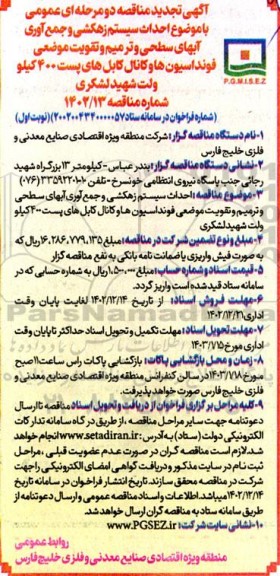 آگهی تجدید مناقصه دو مرحله ای عمومی
با موضوع احداث سیستم زهکشی و جمع آوری
آبهای سطحی و ترمیم و تقویت موضعی
فونداسیون ها و کانال کابل های پست ۴۰۰ کیلو
ولت شهید لشگری
شماره مناقصه ۱۴۰۲/۱۳
P.G.M.I.S.E.Z
(شماره فراخوان در سامانه ستاد ۲۰۰۲۰۰۴۳۴۰۰۰۰۰۵۷) (نوبت اول)
۱-نام دستگاه مناقصه گزار: شرکت منطقه ویژه اقتصادی صنایع معدنی و
فلزی خلیج فارس
۲-نشانی دستگاه مناقصه گزار: بندر عباس - کیلومتر ۱۳ بزرگراه شهید
رجائی جنب پاسگاه نیروی انتظامی خونسرخ - تلفن ۱۰-۳۳۵۹۲۲۰۱ (۰۷۶)
۳-موضوع مناقصه: احداث سیستم زهکشی و جمع آوری آبهای سطحی
و ترمیم و تقویت موضعی فونداسیون ها و کانال کابل های پست ۴۰۰ کیلو
ولت شهید لشگری
۴-مبلغ و نوع تضمین شرکت در مناقصه: مبلغ ۱۶,۲۸۶,۷۷۹,۱۳۵ ریال که
به صورت فیش واریزی یا ضمانت نامه بانکی به نفع مناقصه گزار
۵-قیمت اسناد و شماره حساب: مبلغ ۱,۵۰۰,۰۰۰ ریال به شماره حسابی که در
سامانه ستاد قید شده است واریز گردد.
۶-مهلت فروش اسناد: از تاریخ ۱۴۰۲/۱۲/۱۴ لغایت پایان وقت
اداری ۱۴۰۲/۱۲/۲۱
۷-مهلت تحویل اسناد: مهلت تکمیل و تحویل اسناد حداکثر تا پایان وقت
اداری مورخ ۱۴۰۳/۱/۱۵
۸-زمان و محل بازگشایی پاکات: بازگشایی پاکات راس ساعت ۱۱ صبح
مورخ ۱۴۰۳/۱/۱۸ در سالن کنفرانس منطقه ویژه اقتصادی صنایع معدنی و
فلزی خلیج فارس صورت خواهد پذیرفت.
۹-کلیه مراحل برگزاری فراخوان از دریافت و تحویل اسناد مناقصه تا ارسال
دعوتنامه جهت سایر مراحل مناقصه، از طریق درگاه سامانه تدارکات
الکترونیکی دولت (ستاد) به آدرس: www.setadiran.ir انجام خواهد
شد. لازم است مناقصه گران در صورت عدم عضویت قبلی، مراحل
ثبت نام در سایت مذکور و دریافت گواهی امضای الکترونیکی را جهت
شرکت در مناقصه محقق سازند. تاریخ انتشار فراخوان در سامانه تاریخ
۱۴۰۲/۱۲/۱۴ میباشد. اطلاعات و اسناد مناقصه عمومی و ارسال دعوتنامه از
طریق سامانه ستاد به مناقصه گران ارسال خواهد شد.
۱۰-نشانی سایت شرکت: www.PGSEZ.ir
روابط عمومی
منطقه ویژه اقتصادی صنایع معدنی و فلزی خلیج فارس